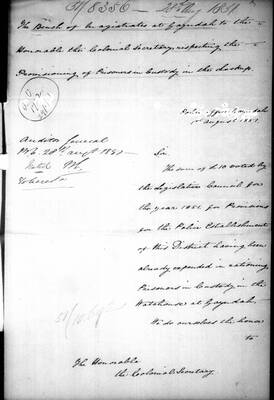 51/8356 - 20th Aug 1851
The Bench of Magistrates at Gayndah to the
Honorable the Colonial Secretary, respecting the
Provisioning of Prisoners in Custody in the Lockup.
Police Office Gayndah
1st August 1851.
Auditor General
B.C. 20th Augt 1851
Sir
The sum of £10 voted by
the Legislative Council for
the year 1851 for Provisions
for the Police Establishment
of this District having been
already expended in rationing
Prisoners in Custody in the
Watchhouse at Gayndah.
We do ourselves the honor
to
The Honorable
the Colonial Secretary